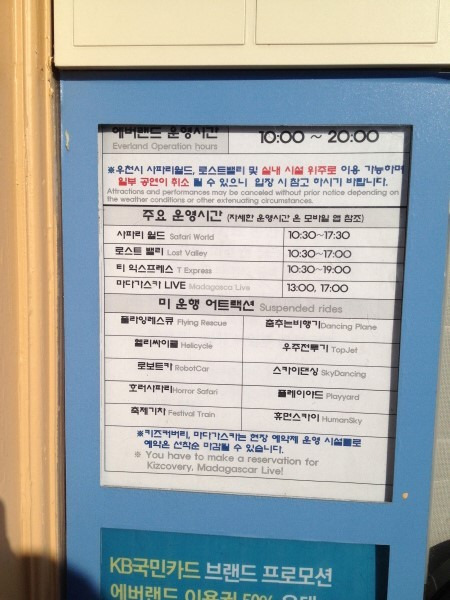 에버랜드 운영시간 10:00 ~ 20:00
Everland Operation hours
※우천시 사파리월드, 로스트밸리 및 실내 시설 위주로 이용 가능하며
일부 공연이 취소 될 수 있으니 입장 시 참고 하시기 바랍니다.
Attractions and performances may be canceled without prior notice depending on
the weather conditions or other extenuating circumstances.
주요 운영시간 (자세한 운영시간 은 모바일 앱 참조)
사파리 월드 Safari World 10:30~17:30
로스트 밸리 Lost Valley 10:30~17:00
티 익스프레스 T Express 10:30~19:00
마다가스카 LIVE Madagasca Live 13:00, 17:00
미 운행 어트랙션 Suspended rides
플라잉레스큐 Flying Rescue 춤추는비행기Dancing Plane
헬리싸이클 Helicycle 우주전투기 TopJet
로보트카 RobotCar 스카이댄싱 SkyDancing
호러사파리Horror Safari 플레이야드 Playyard
축제기차 Festival Train 휴먼스카이 HumanSky
※키즈커버리, 마다가스카는 현장 예약제 운영 시설물로
예약은 선착순 마감될 수 있습니다.
※ You have to make a reservation for
Kizcovery, Madagascar Live!
KB국민카드 브랜드 프로모션
에버랜드 이용권 50% 우대